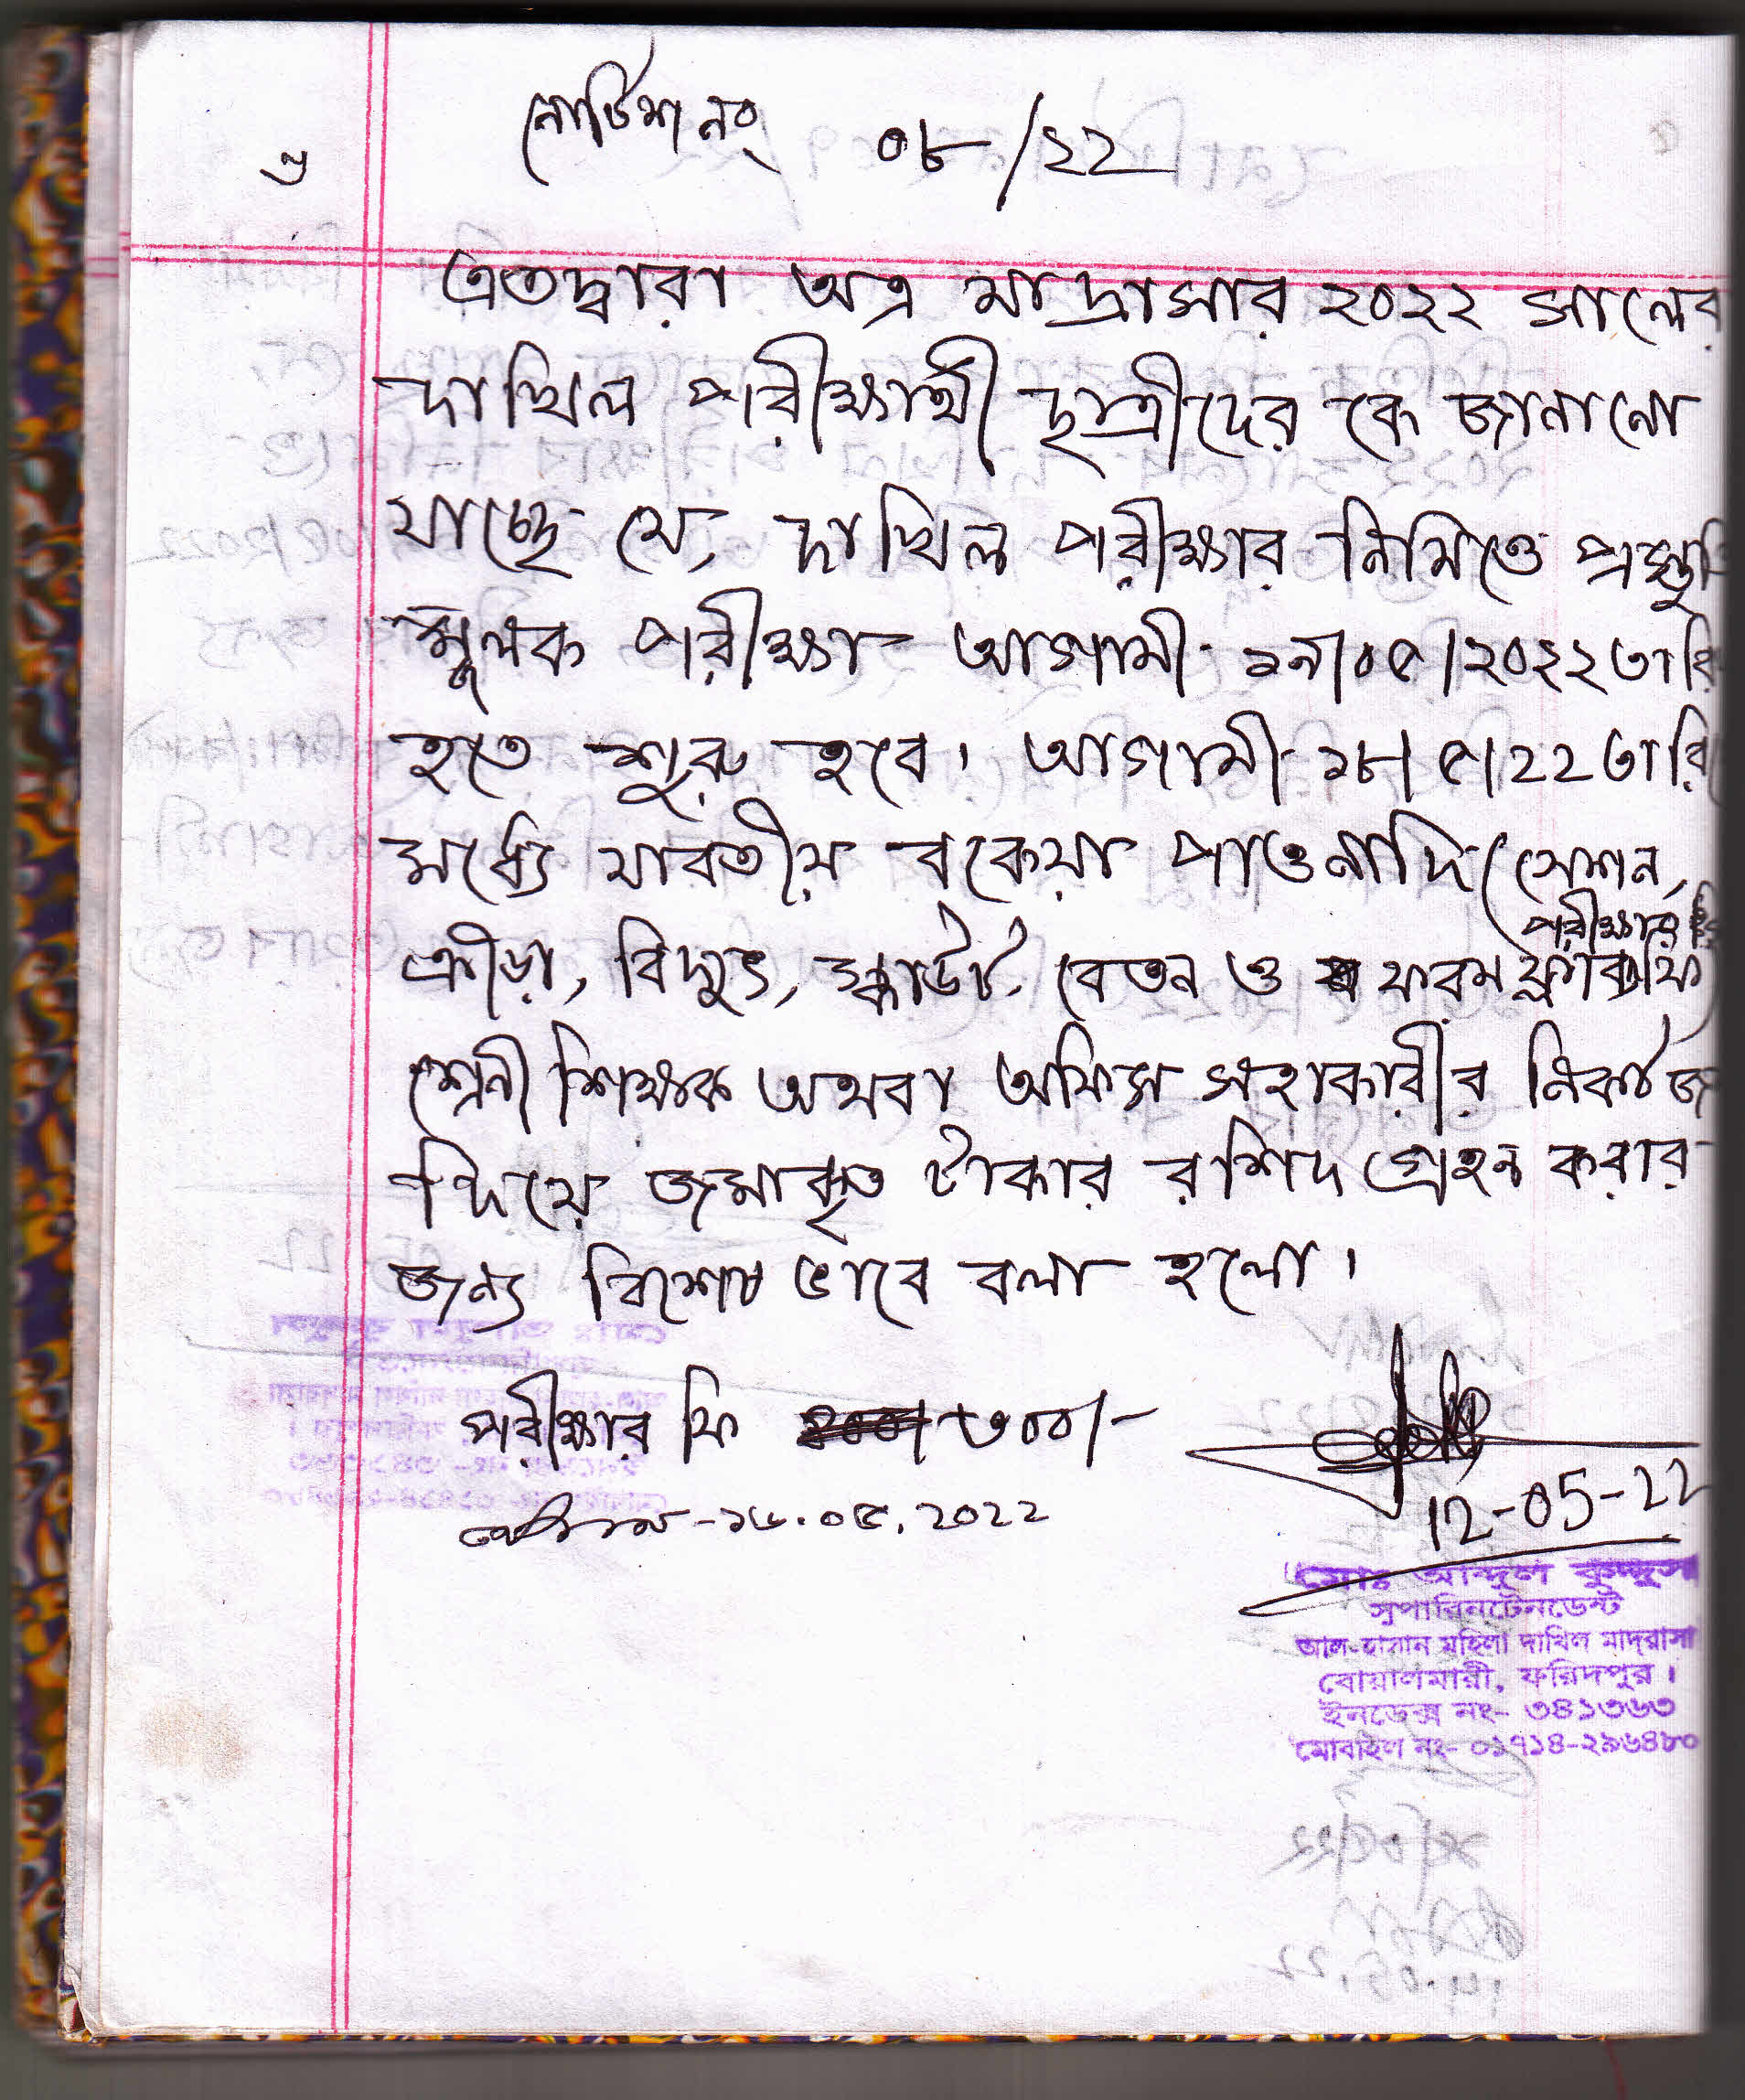 ৬
নোটিশ নং ০৮/২২
এতদ্বারা অত্র মাদ্রাসার ২০২২ সালের
দাখিল পরীক্ষার্থী ছাত্রীদের কে জানানো
যাচ্ছে যে, দাখিল পরীক্ষার নিমিত্তে প্রস্তুতি
মূলক পরীক্ষা আগামী ১৯/০৫/২০২২ তারি
হতে শুরু হবে। আগামী ১৮/৫/22 তারি
মধ্যে যাবতীয় বকেয়া পাওনাদি (সেশন,
পরীক্ষার
ক্রীড়া, বিদ্যুৎ, স্কাউট, বেতন ও ফরম ফি
শ্রেনী শিক্ষক অথবা অফিস সহাকারীর নিকট জ
দিয়ে জমাকৃত টাকার রশিদ গ্রহন করার
জন্য বিশেষ ভাবে বলা হলো।
পরীক্ষার ফি ৩০০/-
১৬.০৫.২০২২
12-05-22
মোঃ আব্দুল কুদ্দুস
সুপারিনটেনডেন্ট
আল-হাসান মহিলা দাখিল মাদ্রাসা
বোয়ালমারী, ফরিদপুর।
ইনডেক্স নং- ৩৪১৩৬৩
মোবাইল নং- ০১৭১৪-২৯৬৪৮০